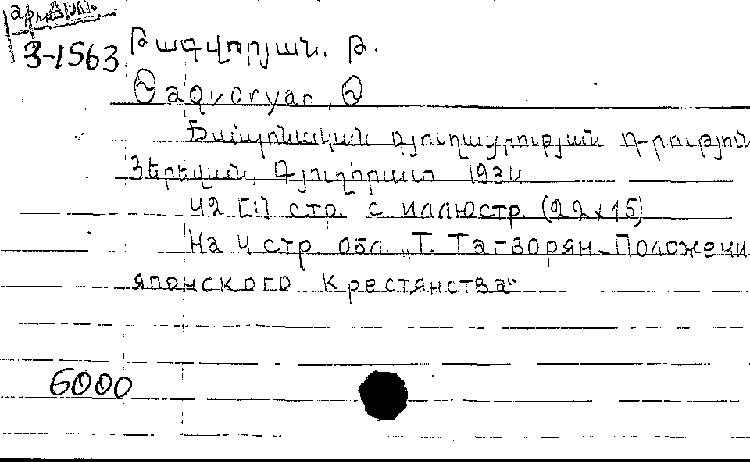 3-1563 Թագվորյան. Թ.
Өagvoryan Ө
Ճապոնական գյուղացության դրություն
Յերեվան, Գյուղհրատ 1934
42 [1] стр. с иллюстр. (22x15)
На 4 стр. обл. „Т. Тагворян-Положени
японского Крестянства"
6000